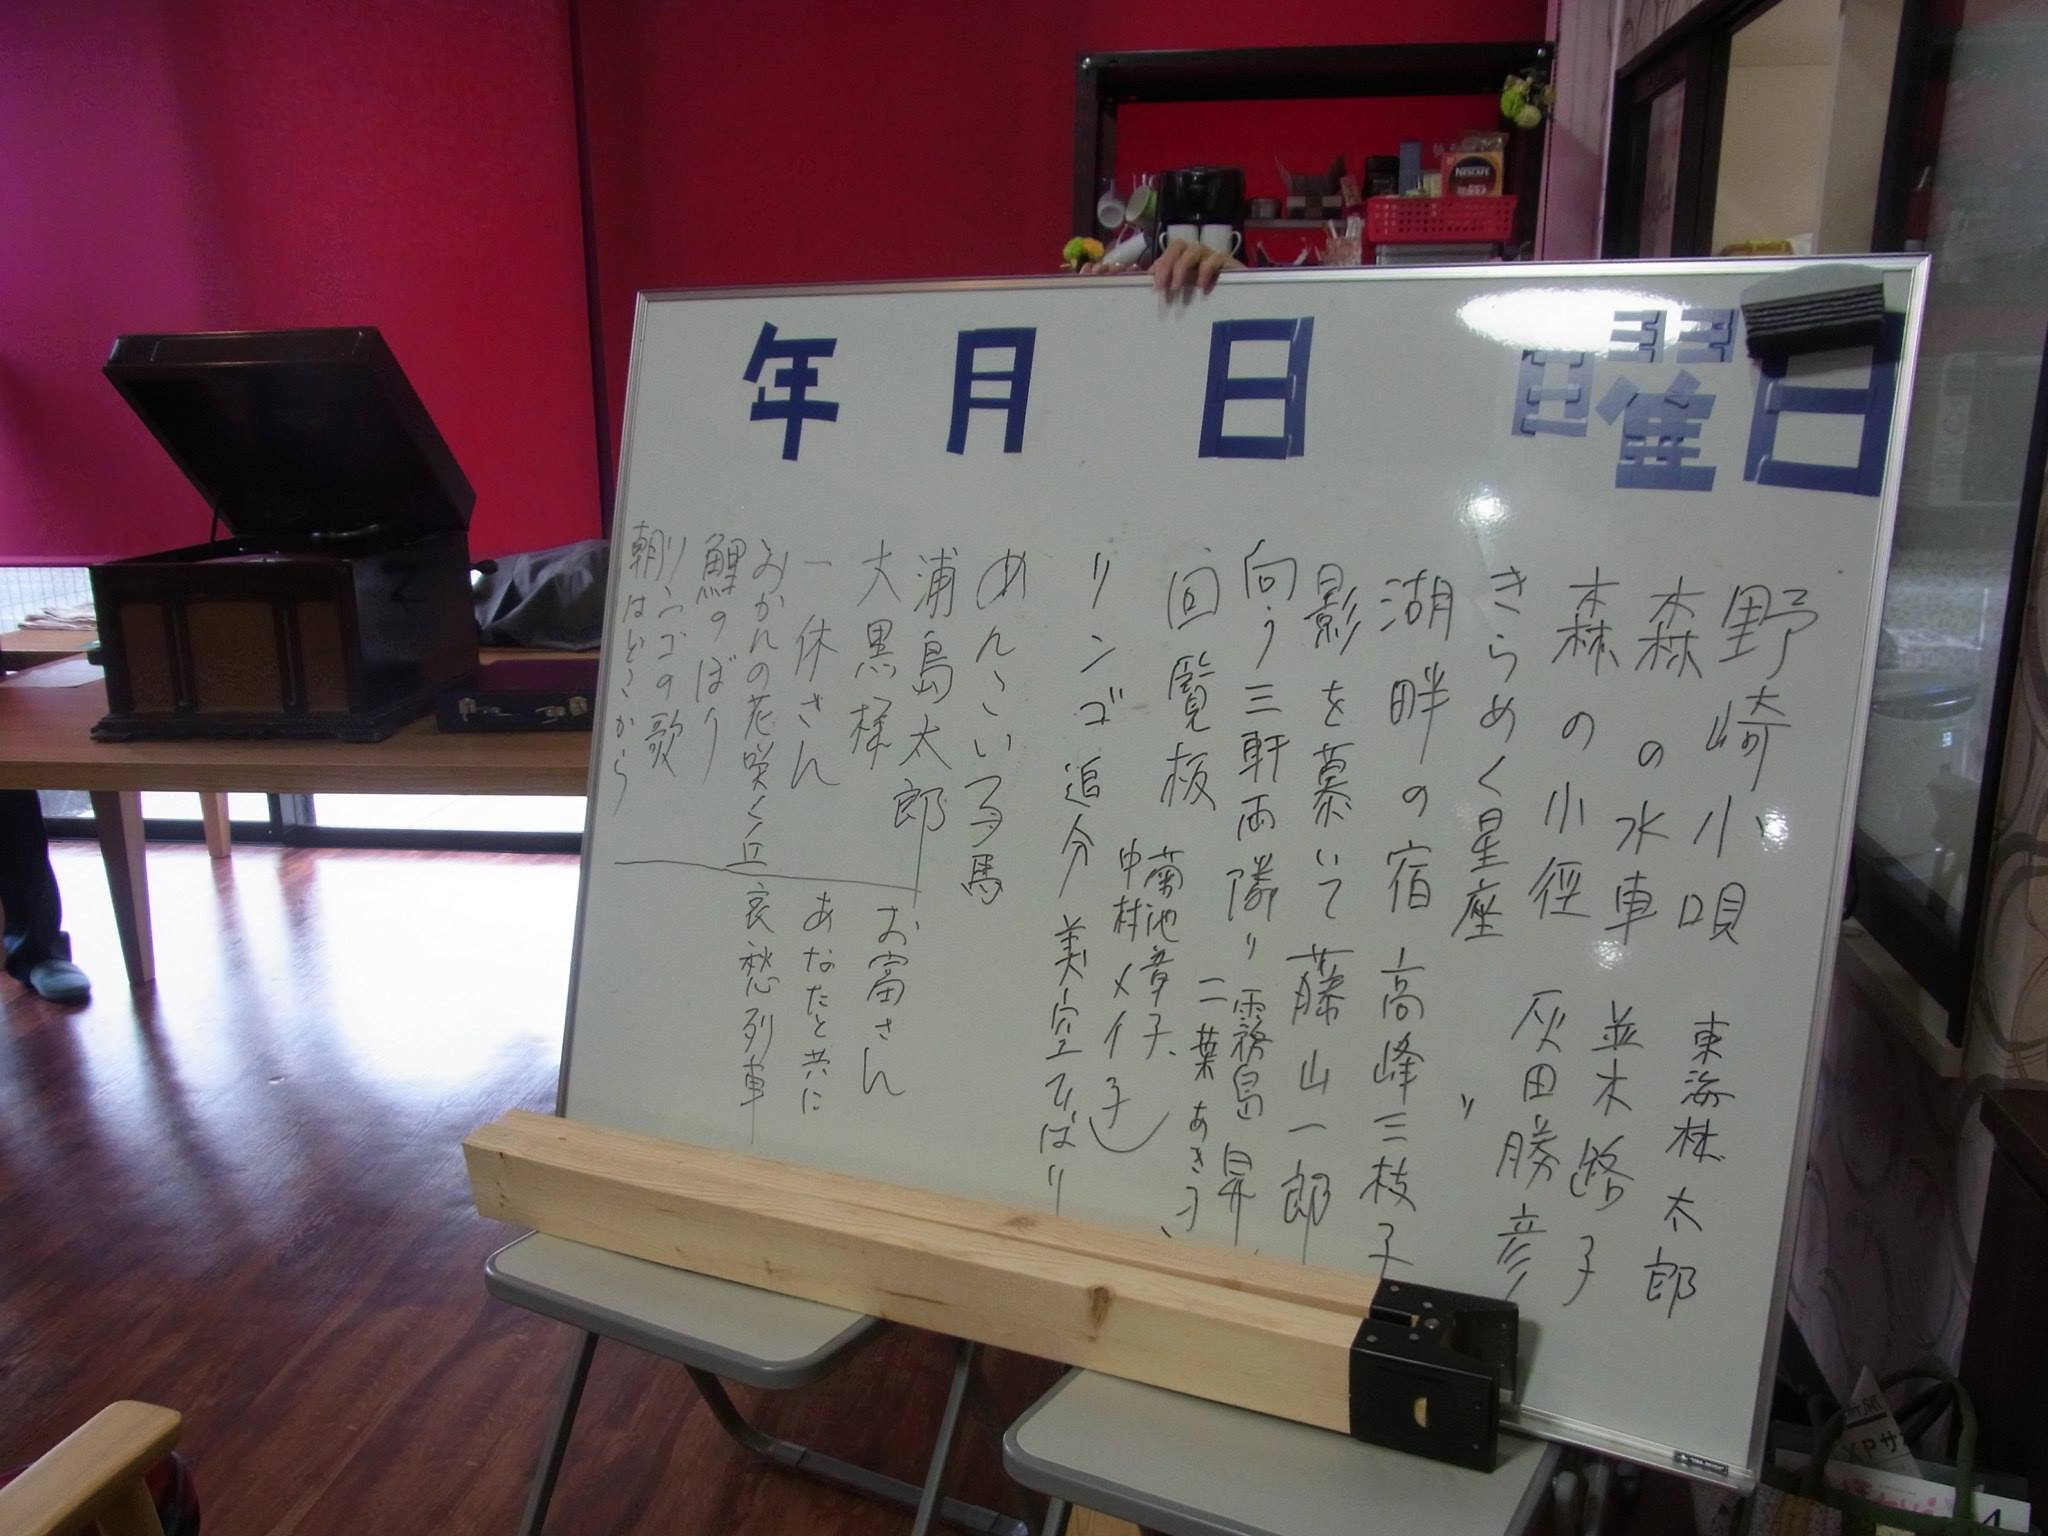 年 月 日 曜日
野崎小唄 東海林太郎
森の水車 並木路子
森の小径 灰田勝彦
きらめく星座 〃
湖畔の宿 高峰三枝子
影を慕いて 藤山一郎
向う三軒両隣り 霧島昇、
二葉あき子、
回覧板 菊池章子、
中村メイ子)
リンゴ追分 美空ひばり
めんこい子馬
浦島太郎
大黒様
一休さん
みかんの花咲く丘
鯉のぼり
リンゴの歌
朝はどこから
お富さん
あなたと共に
哀愁列車
NESCAFE